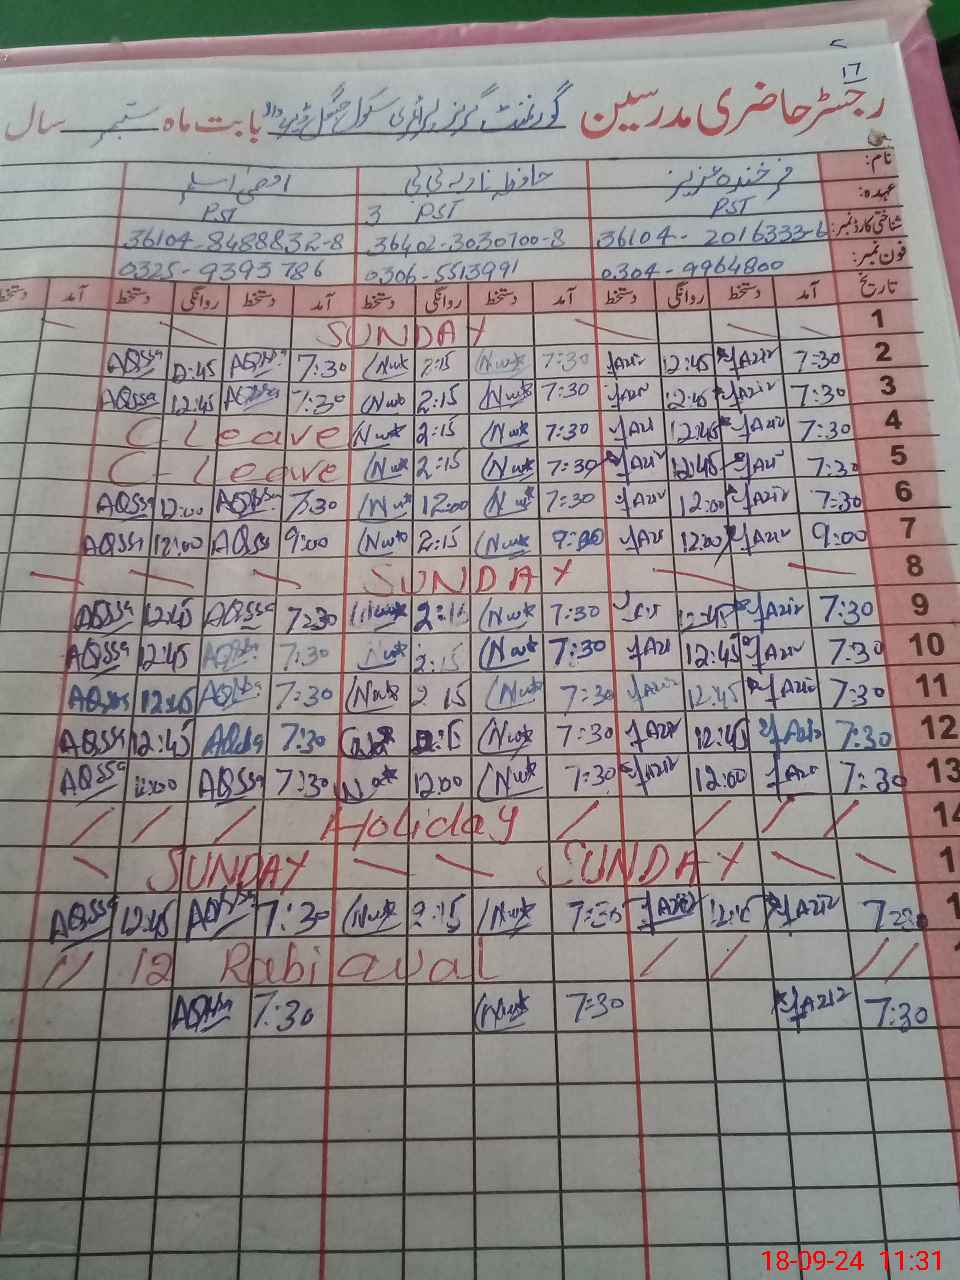 17
رجسٹر حاضری مدرسین گورنمنٹ گرلز پرائمری سکول بابت ماہ ستمبر سال
نام: فرخندہ عزیز حافظہ نادیہ بی بی اقصیٰ اسلم
عہدہ: PST PST 3 PST
شناختی کارڈ نمبر: 36104-2016333-6 36402-3030700-8 36104-8488832-8
فون نمبر: 0304-9964800 0306-5513991 0325-9393786
تاریخ آمد دستخط روانگی دستخط آمد دستخط روانگی دستخط آمد دستخط روانگی دستخط آمد دستخط
1 SUNDAY
2 7:30 Aziz 12:45 Aziz 7:30 2:15 7:30 AQssa 12:45 AQssa
3 7:30 Aziz 12:45 Aziz 7:30 2:15 7:30 AQssa 12:45 AQssa
4 7:30 Aziz 12:45 7:30 2:15 C Leave
5 7:30 12:45 Aziz 7:30 2:15 C-Leave
6 7:30 Aziz 12:00 Aziz 7:30 12:00 7:30 AQssa 12:00 AQssa
7 9:00 Aziz 12:00 Aziz 2:15 9:00 AQssa 12:00 AQssa
8 SUNDAY
9 7:30 Aziz 12:45 7:30 2:15 7:30 AQssa 12:45 AQssa
10 7:30 Aziz 12:45 7:30 2:15 7:30 AQssa 12:45 AQssa
11 7:30 Aziz 12:45 Aziz 7:30 2:15 7:30 AQssa 12:45 AQssa
12 7:30 Aziz 12:45 Aziz 7:30 7:30 AQssa 12:45 AQssa
13 7:30 Aziz 12:00 Aziz 7:30 12:00 7:30 AQssa 12:00 AQssa
14 Holiday
1 SUNDAY SUNDAY
1 7:30 Aziz 12:45 Aziz 7:30 2:15 7:30 AQssa 12:45 AQssa
12 Rabi aval
7:30 Aziz 7:30 7:30 AQssa
18-09-24 11:31